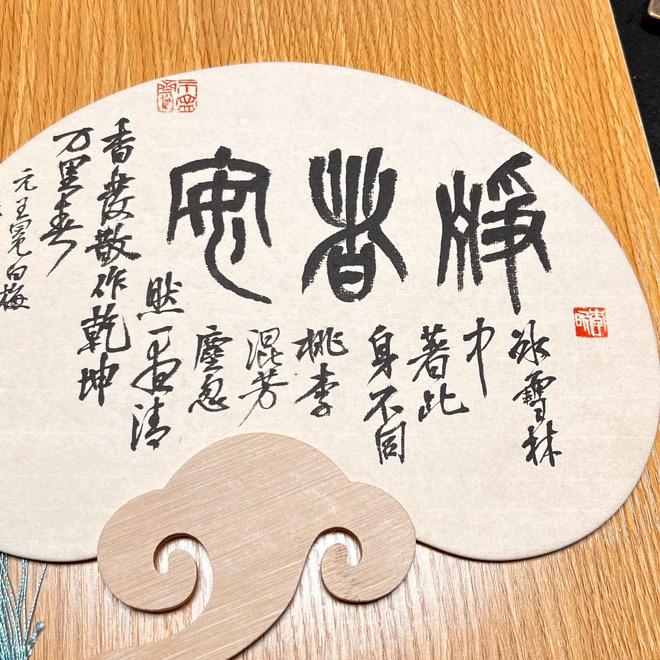 淨者安
冰雪林
中
著此
身不同
桃李
混芳
塵忽
然一夜清
香發散作乾坤
万里春
元王冕白梅